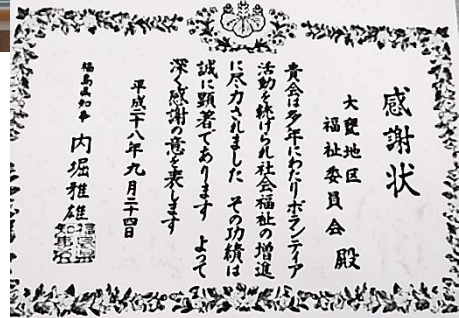 感謝状
大甕地区
福祉委員会 殿
貴会は多年にわたりボランティア
活動を続けられ社会福祉の増進
に尽力されました その功績は
誠に顕著であります よって
深く感謝の意を表します
平成二十八年九月二十四日
福島県知事 内堀雅雄
福島県
知事印